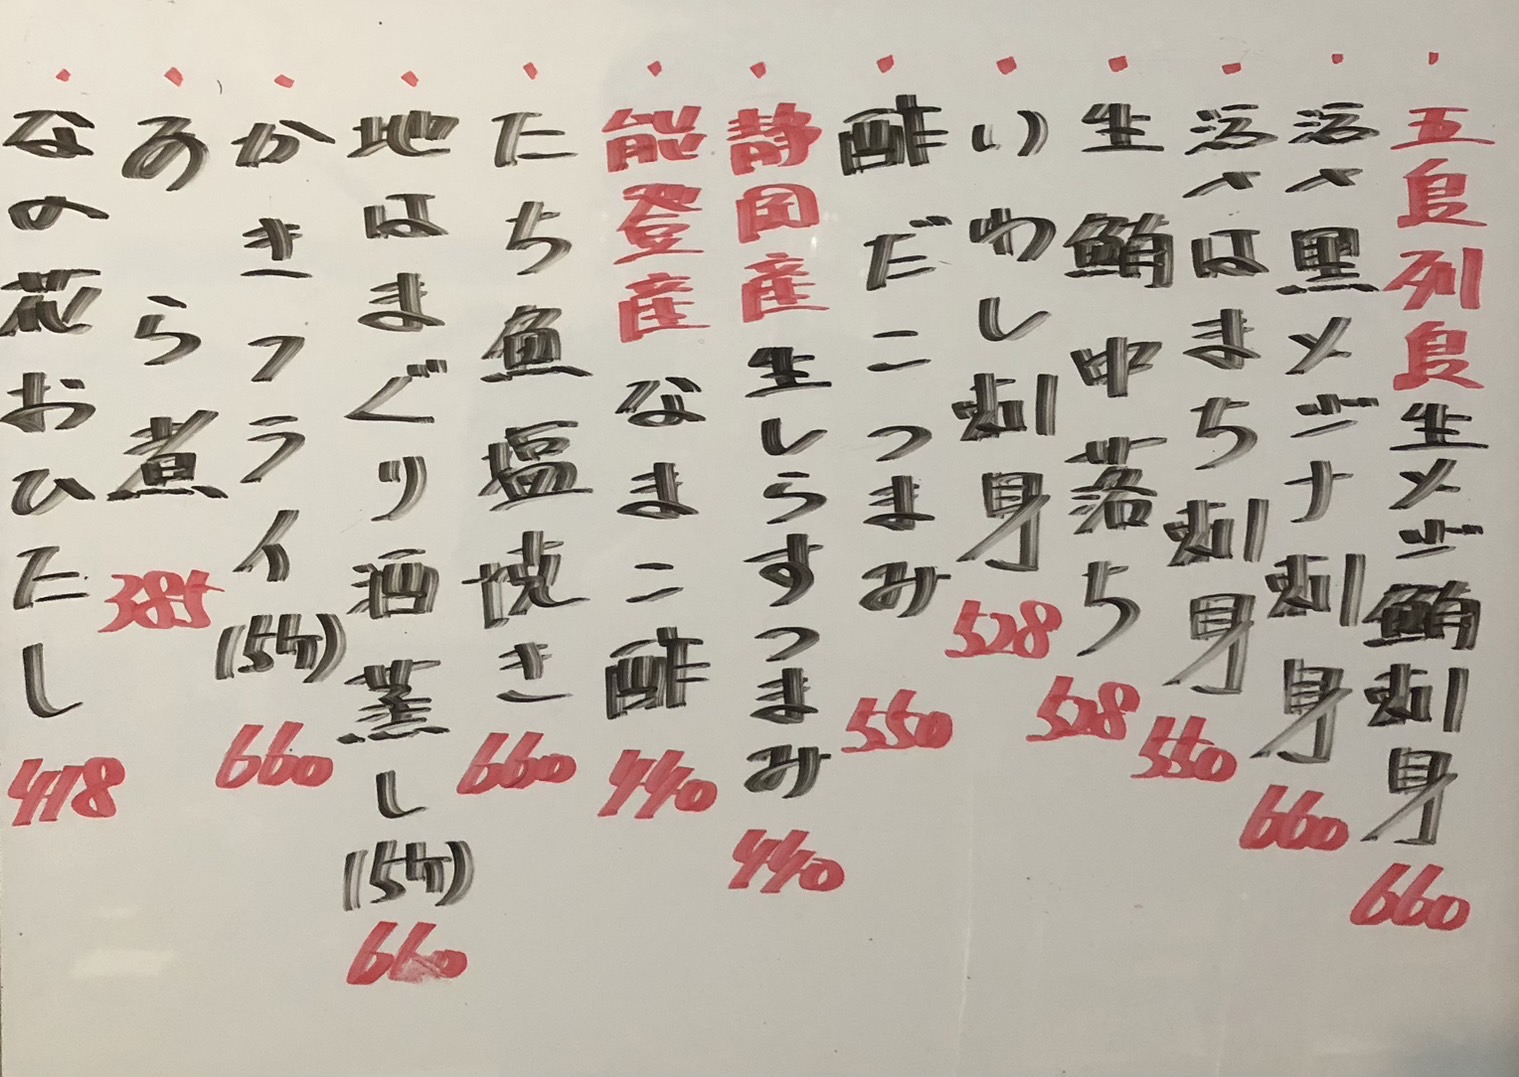 ・五島列島生メジ鮪刺身 660
・活〆黒メジナ刺身 660
・活〆はまち刺身 550
・生鮪中落ち 528
・いわし刺身 528
・酢だこつまみ 550
・静岡産生しらすつまみ 440
・能登産なまこ酢 440
・たち魚塩焼き 660
・地はまぐり酒蒸し(5ケ) 660
・かきフライ(5ケ) 660
・あら煮 385
・なの花おひたし 418